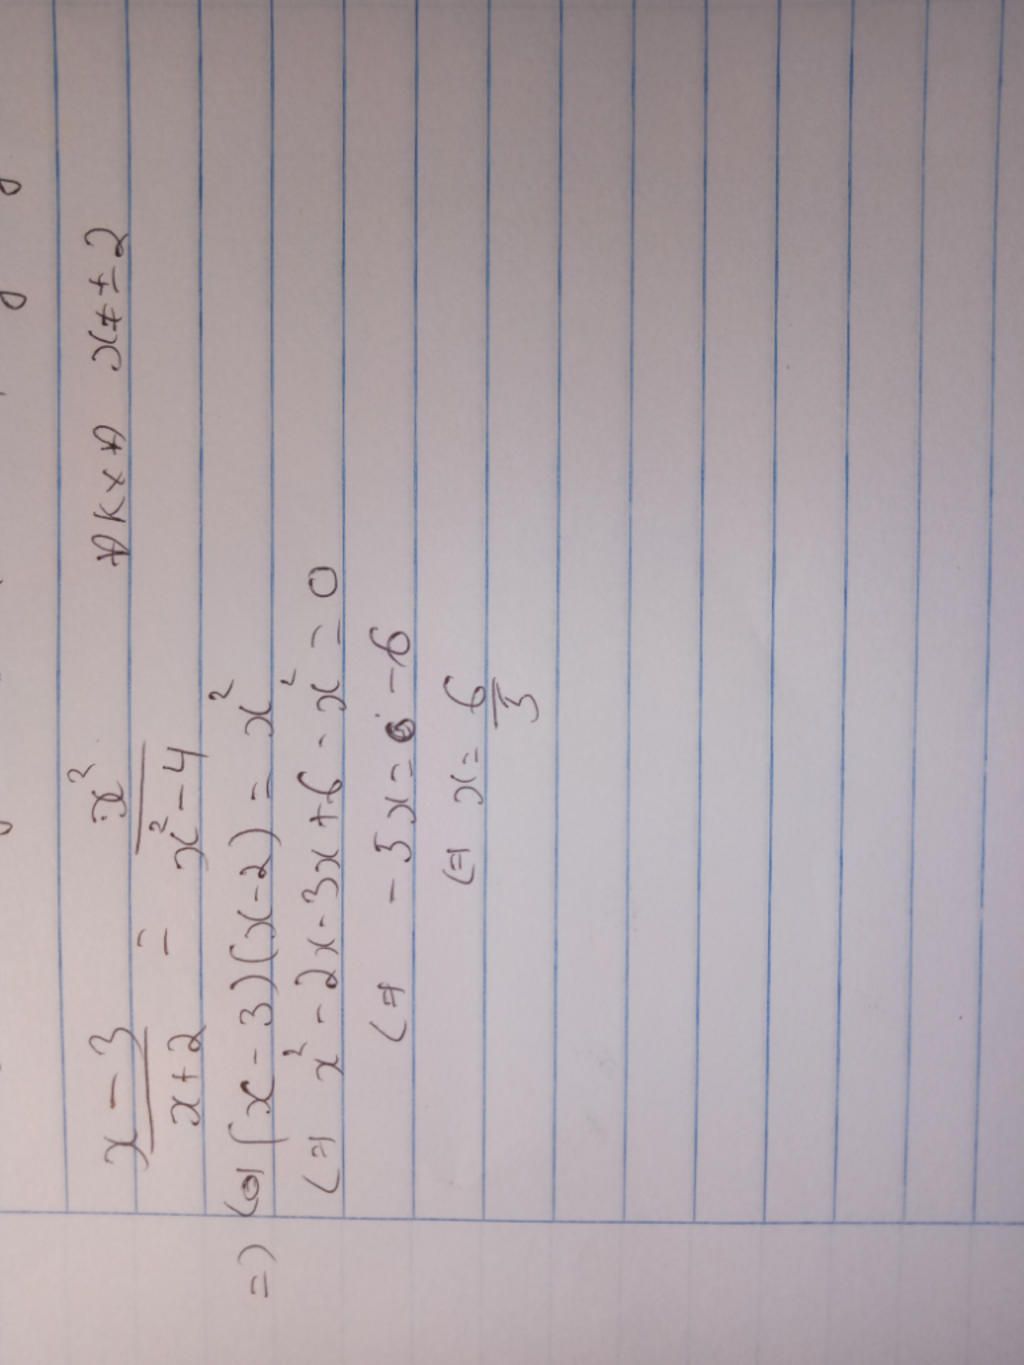 x - 3 / x + 2 = x² / x² - 4 ĐKXĐ x ≠ ± 2
=) (x - 3)(x - 2) = x²
(=) x² - 2x - 3x + 6 - x² = 0
(=) - 5x = - 6
(=) x = 6 / 5